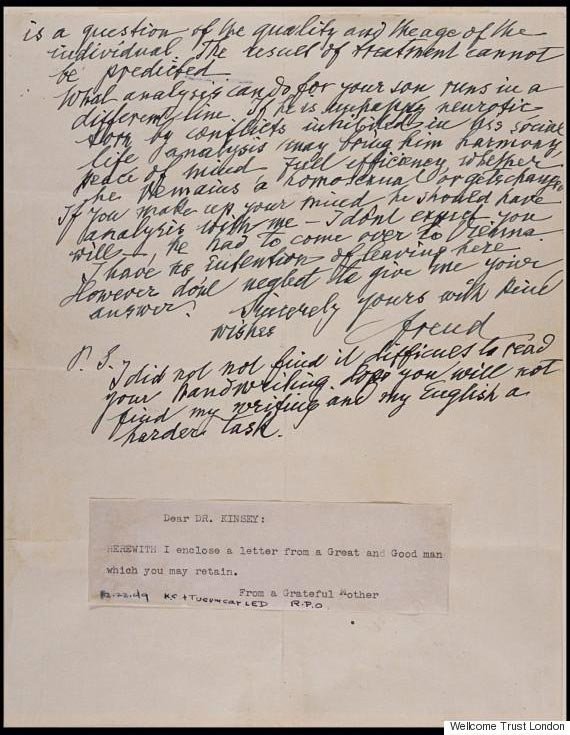 is a question of the quality and the age of the
individual. The result of treatment cannot
be predicted.
What analysis can do for your son runs in a
different line. If he is unhappy neurotic
torn by conflicts inhibited in his social
life analysis may bring him harmony
peace of mind full efficiency whether
he remains a homosexual or gets changed
If you make up your mind, he should have
analysis with me – I dont expect you
will –, he had to come over to Vienna.
I have no intention of leaving here
However dont neglect to give me your
answer.
Sincerely yours with kind
wishes
Freud
P. S.
I did not not find it difficult to read
your handwriting. Hope you will not
find my writing and my English a
harder task.
Dear DR. KINSEY:
HEREWITH I enclose a letter from a Great and Good man
which you may retain.
From a Grateful Mother
R.P.O.
Wellcome Trust London